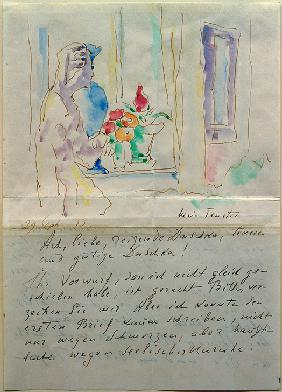 Mein Fenster
Ach, liebe, reizende Daschka, teuere
und gütige Daschka!
Ihr Vorwurf, dass ich nicht gleich ge-
schrieben habe, ist gerecht Bitte, ver-
zeihen Sie mir Aber ich konnte den
ersten Brief kaum schreiben, nicht
nur wegen Schmerzen, aber haupt-
sache wegen seelischer Unruhe.